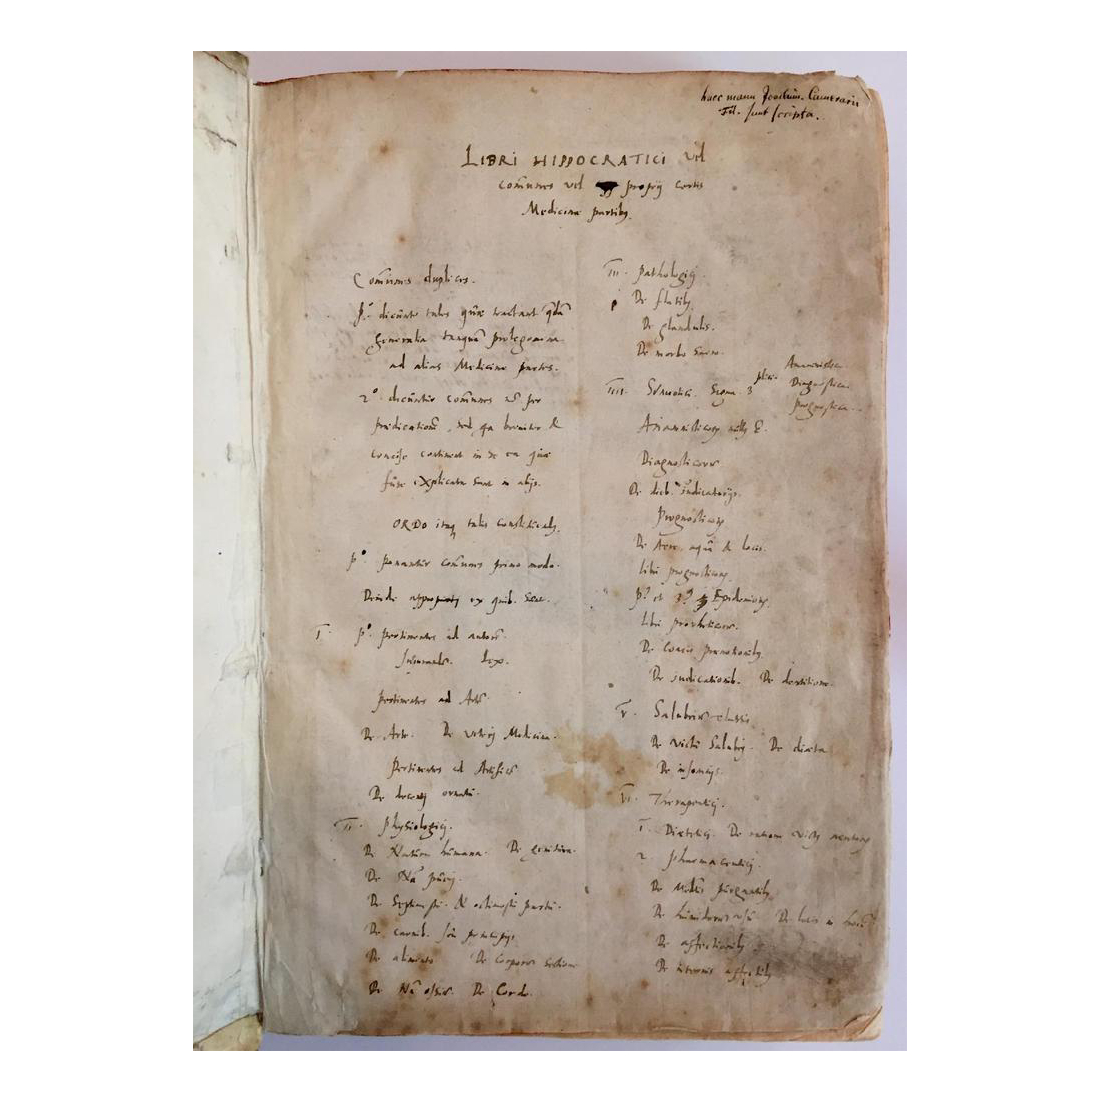 haec manu Joachim. Camerarii
Fil. sunt scripta.
LIBRI HIPPOCRATICI vel
com̄unes vel proprij certis
Medicinæ partib9.
Com̄unes duplices.
P.º dicūntr tales quia tractant
generalia tanquā prolegomena
ad alias Medicinæ partes.
2º. dicūntur com̄unes
prædicationē, sed breviter &
concise continent in se ea quæ
fuse explicata sunt in alijs.
ORDO itaq talis constituetr.
pº ponantūr com̄unes primo modo.
Deinde ex quib. sunt
I. pº pertinentes ad autorē.
Iusiurandū. Lex.
Pertinentes ad Artē
De Arte. De veteri Medicina.
Pertinentes ad Artificē
De decenti ornatū.
II. Physiologici.
De Natura hūmana. De genitūra.
De Nā pūeri.
De Septimestri & octimestri partū.
De carnib. seū principijs
De alimento De Corporū sectione
De Nā ossiū. De Corde.
III. Pathologici.
De flatib9
De glandulis.
De morbo sacro.
IIII. Signa 3 plici.
Anamnistica
Diagnostica
Prognostica
nullū
Diagnosticorū
De dieb. iudicatorijs.
Prognosticorū
De Aere, aquis & locis.
libri prognosticorū
pº et 3º Epidemiorū
libri prorheticorū.
De Coacis prænotionib9
De iudicationib. De dentitione.
V. Salubriū classis
De victū salubri. De diæta
De insomnijs.
VI. Therapeutici.
1. Diætetici. De ratione victūs acutorū
2 Pharmaceutici.
De Medicis purgantib9
De humidorū usū De locis in homine
De affectionib9
De internis affectib9